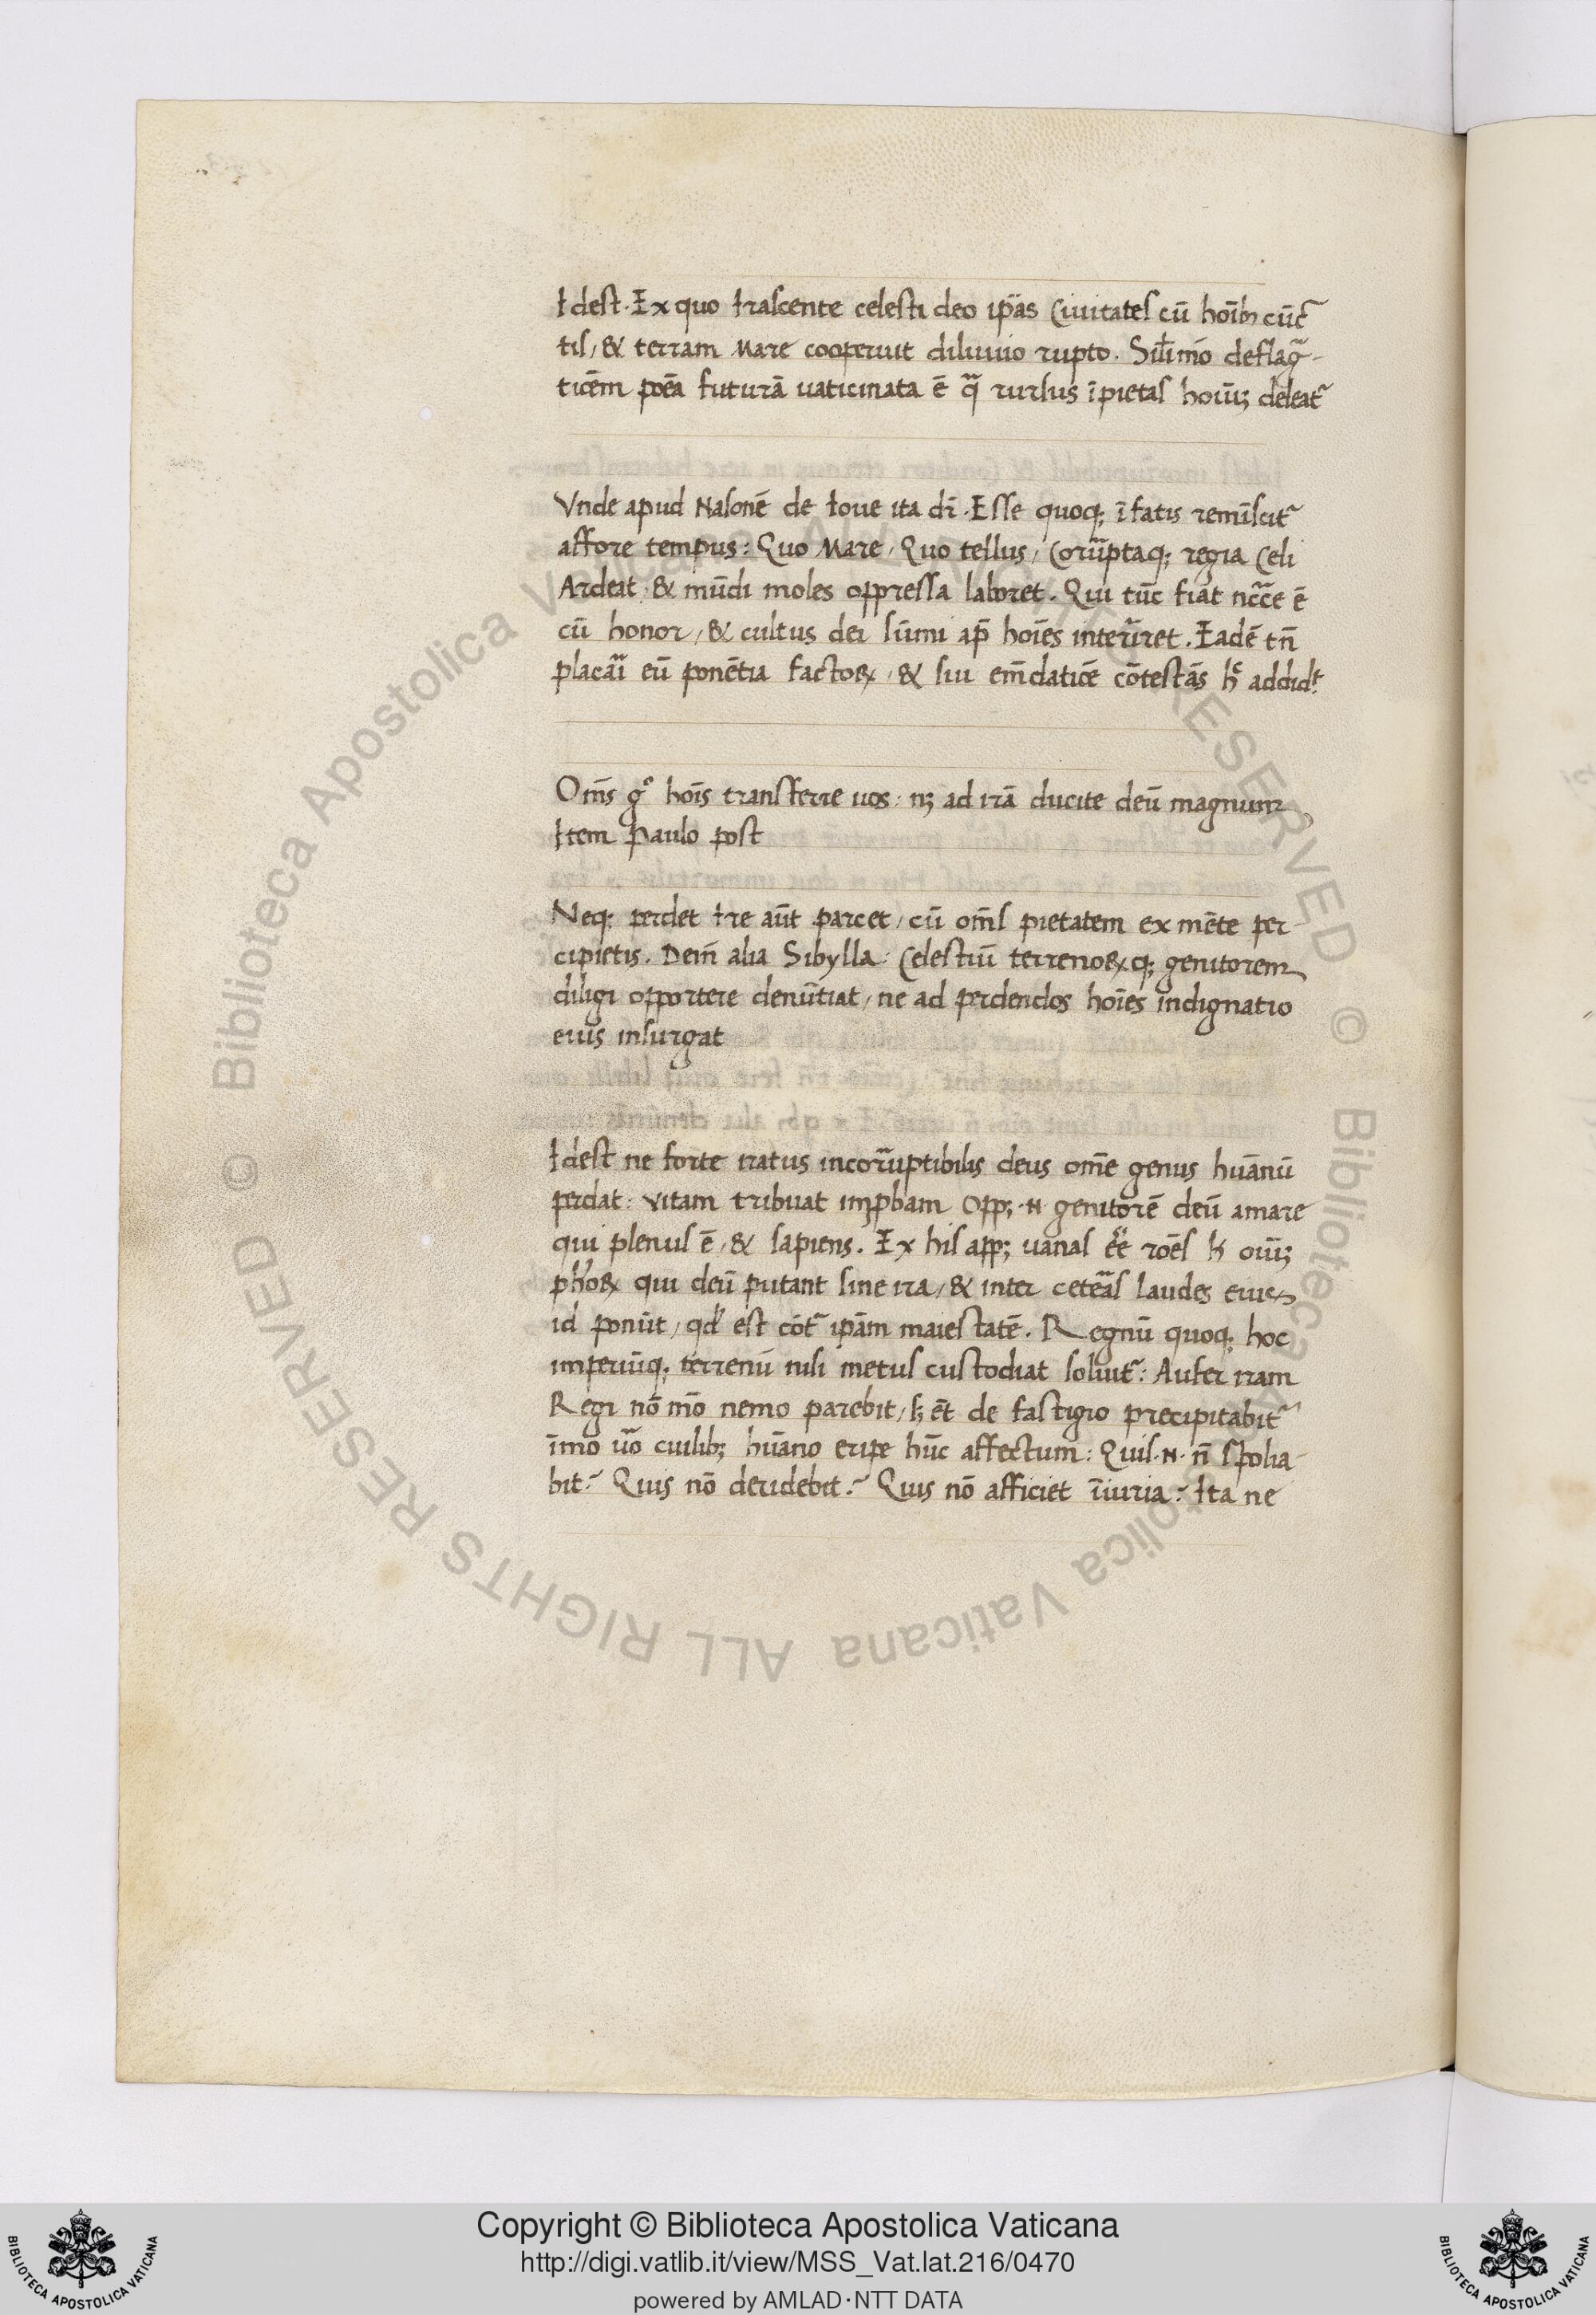 Idest. Ex quo Irascente celesti deo ip̄as Ciuitates cū hoīb; cūc
tis, & terram Mare cooperuit diluuio rupto. Sil̄imō deflag̃-
ticēm poēa futurā uaticinata ē q̃ rursus īpietas hoīu; deleat᷑
Vnde apud Nasonē de Ioue ita dr̄. Esse quoq; ī fatis remīscit᷑
affore tempus: Quo Mare, Quo tellus, Corūptaq; regia Celi
Ardeat, & mūdi moles oppressa laboret. Qui tūc fiat nc̄c̄e ē
cū honor, & cultus dei sūmi ap̄ hoīes interīret. Eadē tn̄
placāi eū ponētia factoꝝ, & sui em̄daticē cōtestās h̄ addidᵗ.
Om̄s g° hoīs transferre uos: n; ad irā ducite deū magnum
Item Paulo post
Neq; perdet Ire aūt parcet, cū om̄s pietatem ex mēte per-
cipietis. Dein̄ alia Sibylla: Celestiū terrenoꝝq; genitorem
diligi opportere denūtiat, ne ad perdendos hoīes indignatio
eius insurgat
Idest ne forte iratus incorruptibilis deus om̄e genus huānū
perdat: vitam tribuat imp̱bam Opp; .N. genitorē deū amare
qui plenus ē, & sapiens. Ex his app; uanas ēē roēs oīu;
ph̄oꝝ qui deū putant sine ira, & inter cetēas laudes eius
id ponūt, qd̄ est cōt᷑ ip̄am maiestatē. Regnū quoq; hoc
imperiūq; terrenū nisi metus custodiat soluit᷑: Aufer iram
Regi nō mō nemo parebit, s; ēt de fastigio precipitabit᷑
īmo ūo cuilib; hūano eripe hūc affectum: Quis .N. n̄ spolia-
bit? Quis nō deridebit? Quis nō afficiet īiuria? Ita ne
Copyright © Biblioteca Apostolica Vaticana
http://digi.vatlib.it/view/MSS_Vat.lat.216/0470
powered by AMLAD·NTT DATA
BIBLIOTECA APOSTOLICA VATICANA
BIBLIOTECA APOSTOLICA VATICANA
© Biblioteca Apostolica Vaticana ALL RIGHTS RESERVED © Biblioteca Apostolica Vaticana ALL RIGHTS RESERVED